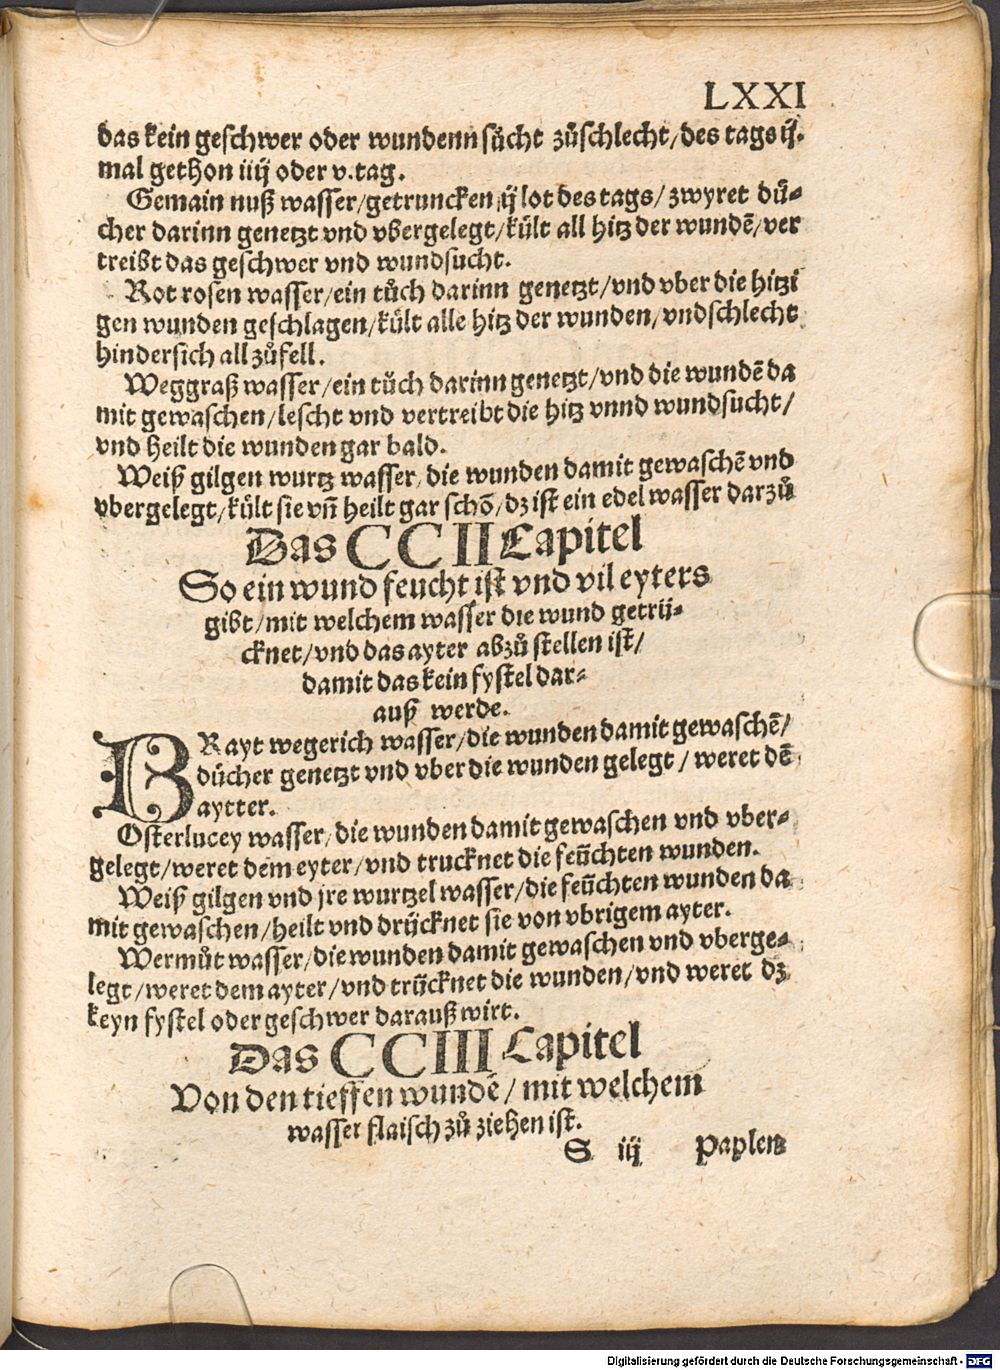 LXXI
das kein geschwer oder wundenn sůcht zůschlecht/des tags ij.
mal gethon iiij oder v.tag.
Gemain nuß wasser/getruncken ij lot des tags/ zwyret dü-
cher darinn genetzt vnd vbergelegt/kült all hitz der wundē/ver
treibt das geschwer vnd wundsucht.
Rot rosen wasser/ein tůch darinn genetzt/vnd vber die hitzi
gen wunden geschlagen/kült alle hitz der wunden/vndschlecht
hindersich all zůfell.
Weggraß wasser/ein tůch darinn genetzt/vnd die wundē da
mit gewaschen/lescht vnd vertreibt die hitz vnnd wundsucht/
vnd heilt die wunden gar bald.
Weiß gilgen wurtz wasser, die wunden damit gewaschē vnd
vbergelegt/kült sie vñ heilt gar schō/dz ist ein edel wasser darzů
Das CC II Capitel
So ein wund feucht ist vnd vil eyters
gibt/mit welchem wasser die wund getrü-
cknet/vnd das ayter abzů stellen ist/
damit das kein fystel dar-
auß werde.
BRayt wegerich wasser/die wunden damit gewaschē/
dücher genetzt vnd vber die wunden gelegt/weret dē
aytter.
Osterlucey wasser, die wunden damit gewaschen vnd vber-
gelegt/weret dem eyter/vnd trucknet die feüchten wunden.
Weiß gilgen vnd jre wurtzel wasser/die feüchten wunden da
mit gewaschen/heilt vnd drücknet sie von vbrigem ayter.
Wermůt wasser/die wunden damit gewaschen vnd vberge-
legt/weret dem ayter/vnd trücknet die wunden/vnd weret dz
keyn fystel oder geschwer darauß wirt.
Das CCIII Capitel
Von den tieffen wundē/mit welchem
wasser flaisch zů ziehen ist.
S iij Paplen
Digitalisierung gefördert durch die Deutsche Forschungsgemeinschaft - DFG